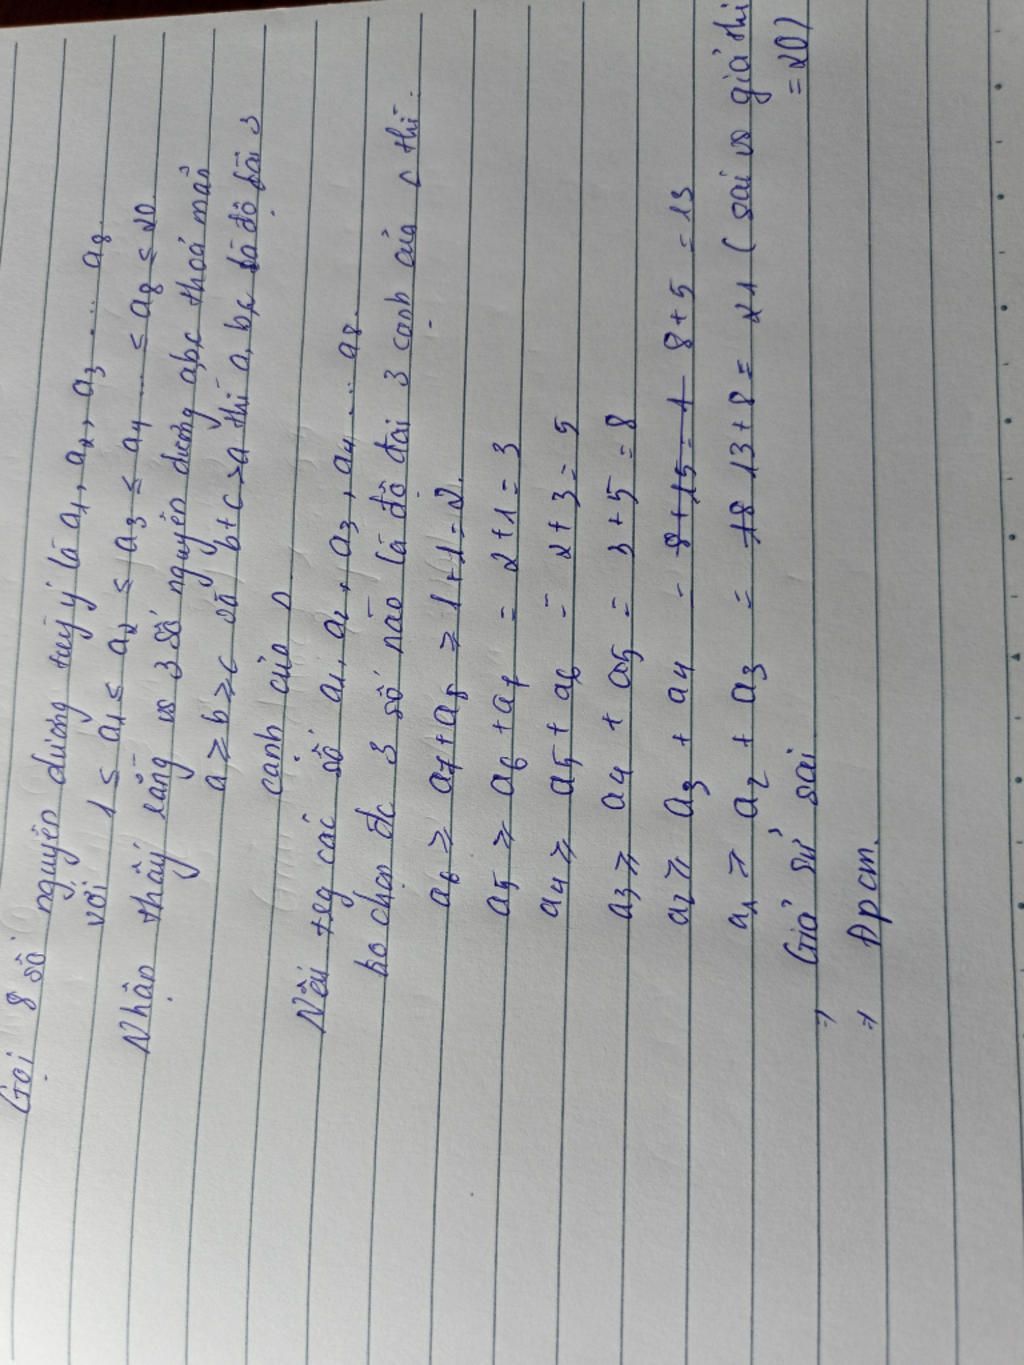 Gọi 8 số nguyên dương tuỳ ý là a1, a2, a3 ... a8
với 1 ≤ a1 ≤ a2 ≤ a3 ≤ a4 ... ≤ a8 ≤ 20
Nhận thấy rằng vs 3 số nguyên dương a,b,c thoả mãn
a ≥ b ≥ c và b+c > a thì a, b,c là độ dài 3
cạnh của Δ
Nếu trg các số a1, a2, a3, a4 ... a8
ko chọn đc 3 số nào là độ dài 3 cạnh của Δ thì:
a6 ≥ a7+a8 ≥ 1+1=2.
a5 ≥ a6 +a7 = 2+1=3
a4 ≥ a5 + a6 = 2+3=5
a3 ≥ a4 + a5 = 3+5=8
a2 ≥ a3 + a4 = 8+15=1 8+5 =13
a1 ≥ a2 + a3 = 18 13+8 = 21 ( sai vs giả thi
= 20)
⇒ Giả sử sai
⇒ Đpcm.